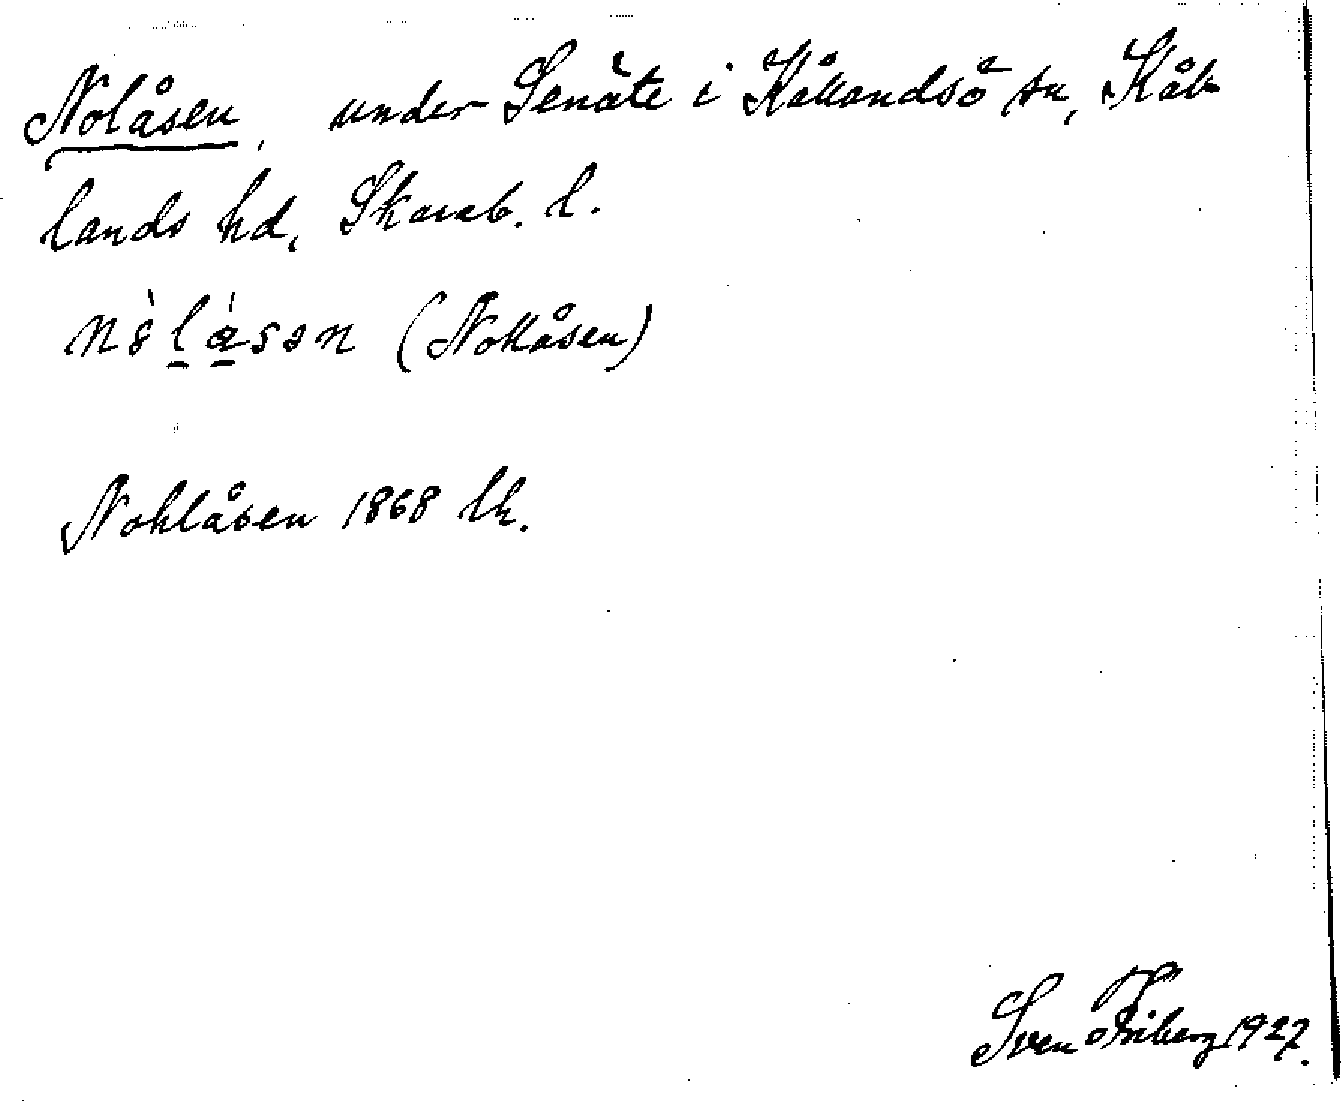 Nolåsen, under Senäte i Kållandsö sn, Kål-
lands hd, Skarab. l.
nòlásən (Nollåsen)
Nohlåsen 1868 lk.
Sven Friberg 1927.